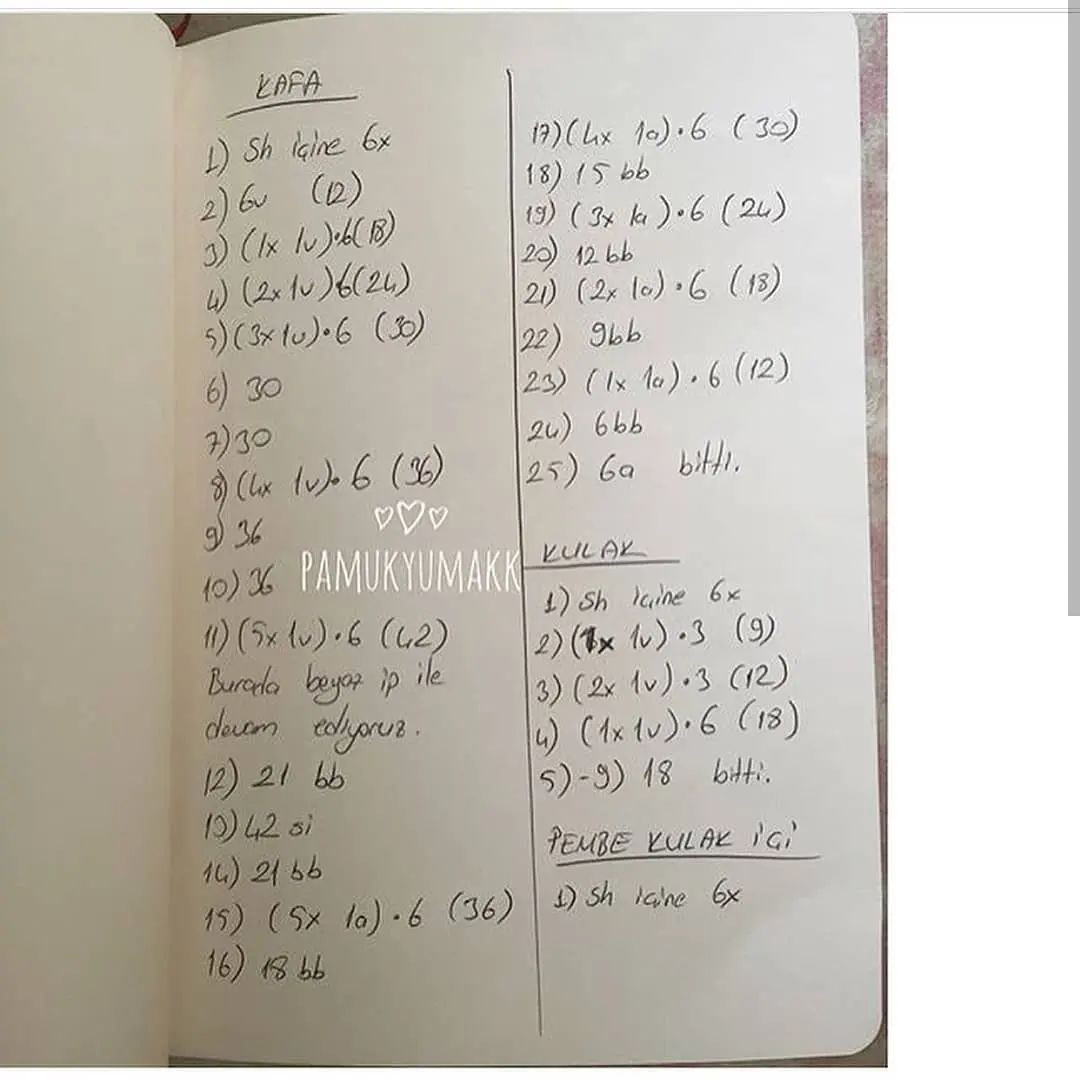 KAFA
1) Sh içine 6x
2) 6v (12)
3) (1x 1v)•6(18)
4) (2x 1v)6(24)
5) (3x 1v)•6 (30)
6) 30
7) 30
8) (4x 1v)•6 (36)
9) 36
10) 36
11) (5x 1v)•6 (42)
Burada beyaz ip ile
devam ediyoruz.
12) 21 bb
13) 42 si
14) 21 bb
15) (5x 1a)•6 (36)
16) 18 bb
17) (4x 1a)•6 (30)
18) 15 bb
19) (3x 1a)•6 (24)
20) 12 bb
21) (2x 1a)•6 (18)
22) 9bb
23) (1x 1a)•6 (12)
24) 6bb
25) 6a bitti.
KULAK
1) Sh içine 6x
2) (1x 1v)•3 (9)
3) (2x 1v)•3 (12)
4) (1x 1v)•6 (18)
5)-9) 18 bitti.
PEMBE KULAK İÇİ
1) Sh içine 6x
PAMUKYUMAKK